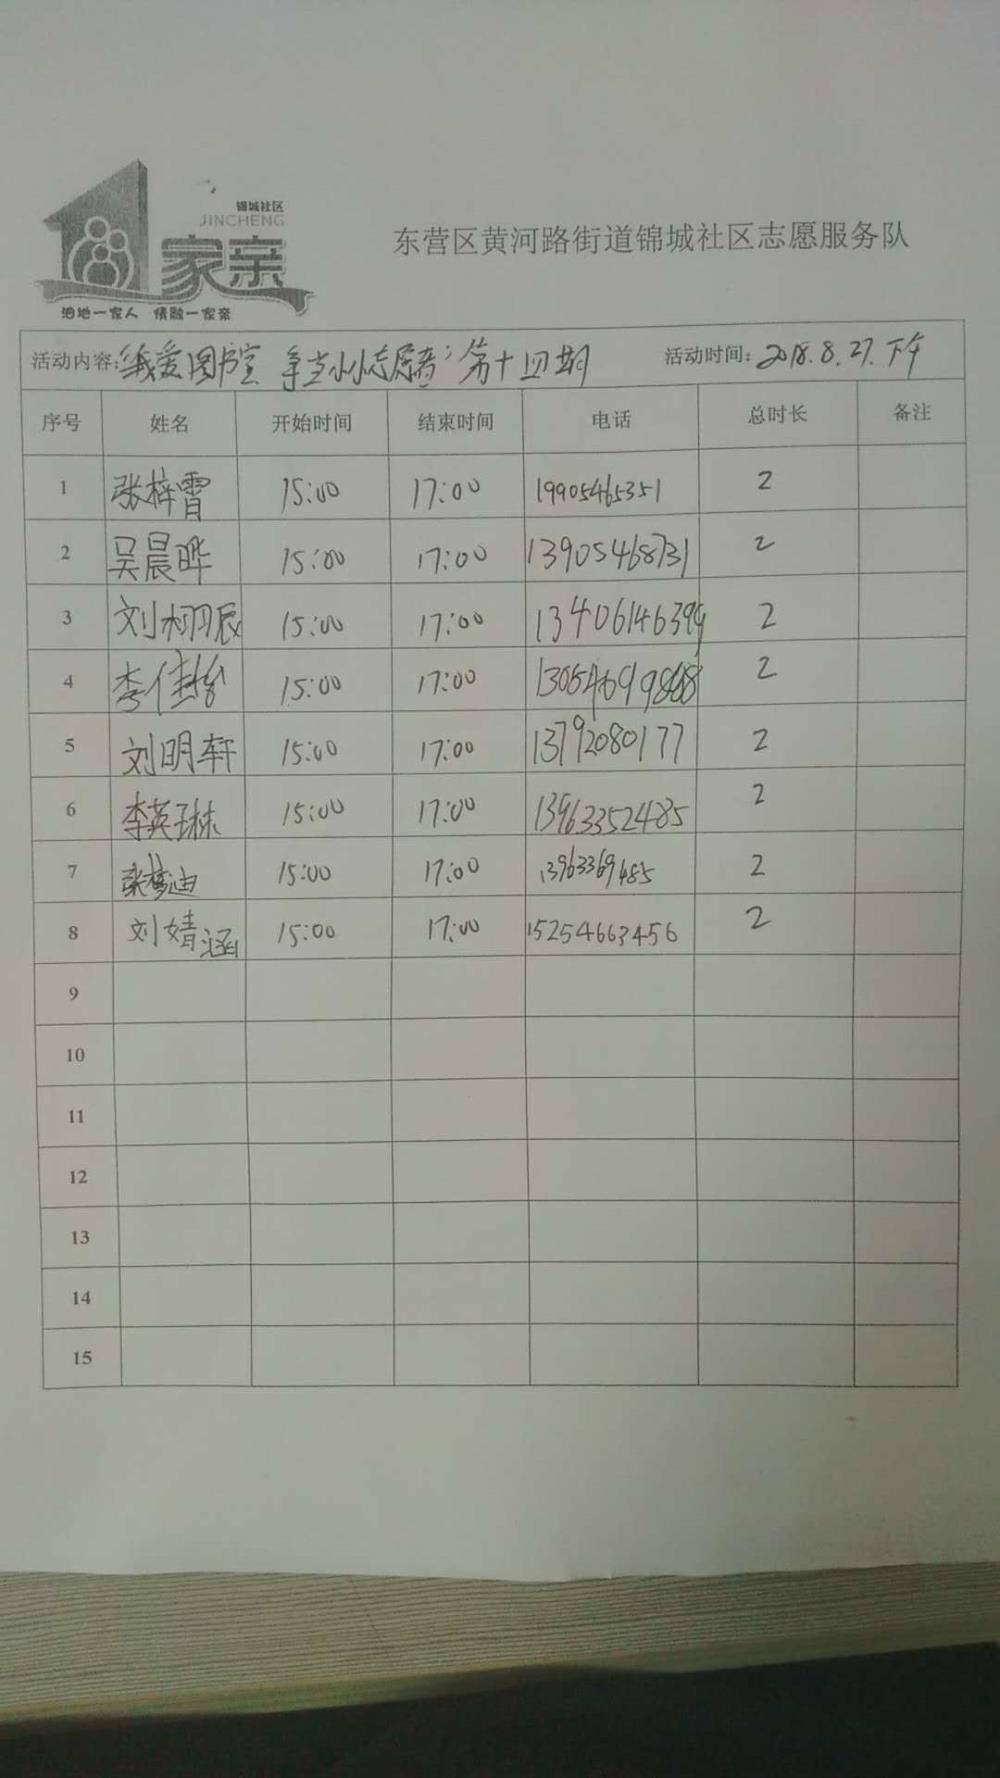 锦城社区
JINCHENG
家亲
泊地一家人 情融一家亲
东营区黄河路街道锦城社区志愿服务队
活动内容:“我爱图书室 争当小小志愿者”第十四期 活动时间:2018.8.27.下午
序号 姓名 开始时间 结束时间 电话 总时长 备注
1 张梓霄 15:00 17:00 19905465351 2
2 吴晨晔 15:00 17:00 13905468731 2
3 刘栩辰 15:00 17:00 13406146399 2
4 李佳怡 15:00 17:00 2
5 刘明轩 15:00 17:00 13792080177 2
6 李英琳 15:00 17:00 13963352485 2
7 张梦迪 15:00 17:00 13963369485 2
8 刘婧涵 15:00 17:00 15254663456 2
9
10
11
12
13
14
15